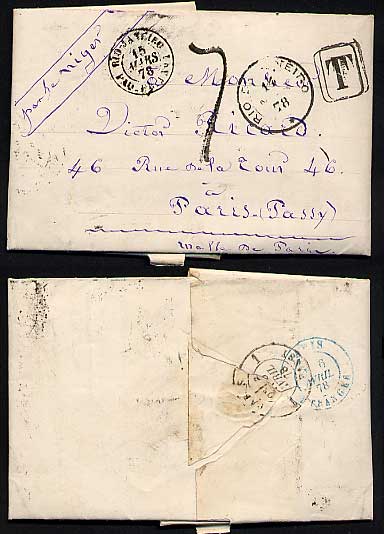 par le Niger
RIO-JANEIRO
15
MARS
78
7
RIO JANEIRO
14
78
T
Monsieur
Victor Ricard
46 Rue de la Tour 46
à
Paris-(Passy)
Malle de Paris
PARIS
6
AVRIL
78
ETRANGER